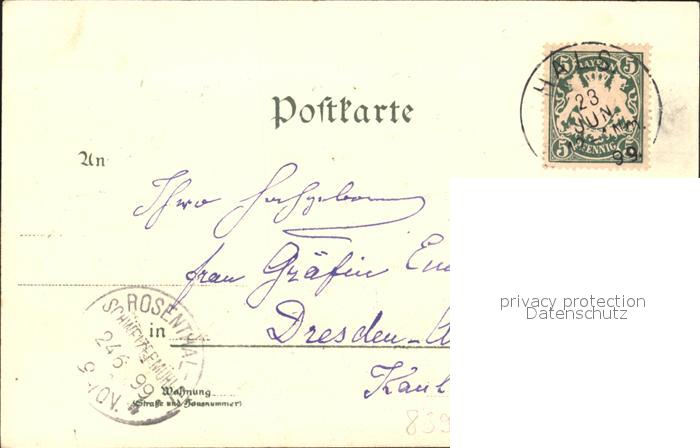 HALS
23
JUN
99
5 BAYERN 5
5 PFENNIG 5
Postkarte
An
Ihro Hochgeboren
frau Gräfin
Dresden-
in
ROSENTHAL-
SCHWEIZERMÜHLE
24 6 99
Wohnung
(Straße und Hausnummer)
privacy protection
Datenschutz
839